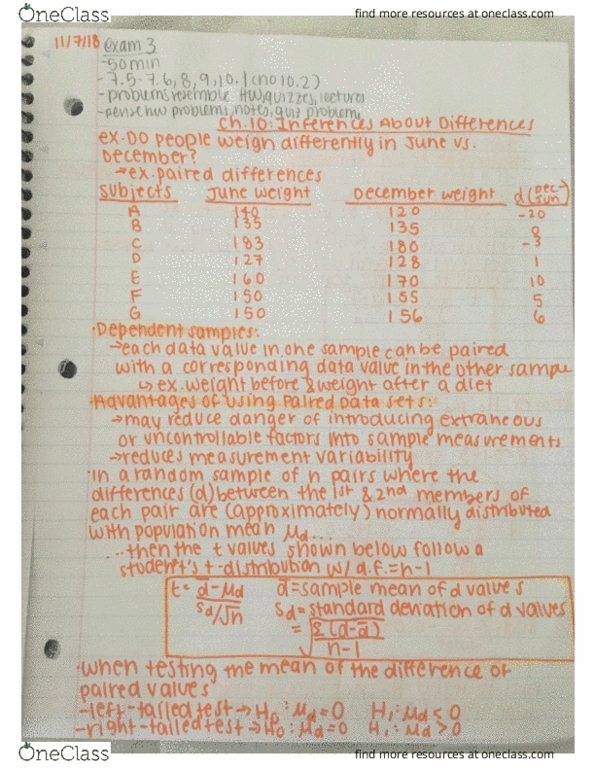 OneClass
find more resources at oneclass.com
11/7/18 exam 3
-50min
-7.5-7.6, 8, 9, 10.1 (no 10.2)
-problems resemble HW, quizzes, lectures
problems, notes, quiz problems
Ch.10: Inferences About Differences
ex. Do people weigh differently in June vs.
December?
→ex. paired differences
subjects June weight December weight d(Dec-Jun)
A 140 120 -20
B 135 135 0
C 183 180 -3
D 127 128 1
E 160 170 10
F 150 155 5
G 150 156 6
·Dependent samples:
→each data value in one sample can be paired
with a corresponding data value in the other sample
↳ ex. weight before & weight after a diet
·Advantages of Using Paired Data Sets:
→may reduce danger of introducing extraneous
or uncontrollable factors into sample measurements
→reduces measurement variability
·In a random sample of n pairs where the
differences (d) between the 1st & 2nd members of
each pair are (approximately) normally distributed
with population mean μd...
...then the t values shown below follow a
student's t-distribution w/ d.f.=n-1
t= d̄-μd / sd/√n d̄=sample mean of d values
sd=standard deviation of d values
=√Σ(d-d̄) / n-1
·when testing the mean of the difference of
paired values
-left-tailed test→H₀:μd=0 H₁:μd<0
-right-tailed test→H₀:μd=0 H₁:μd>0
OneClass
find more resources at oneclass.com